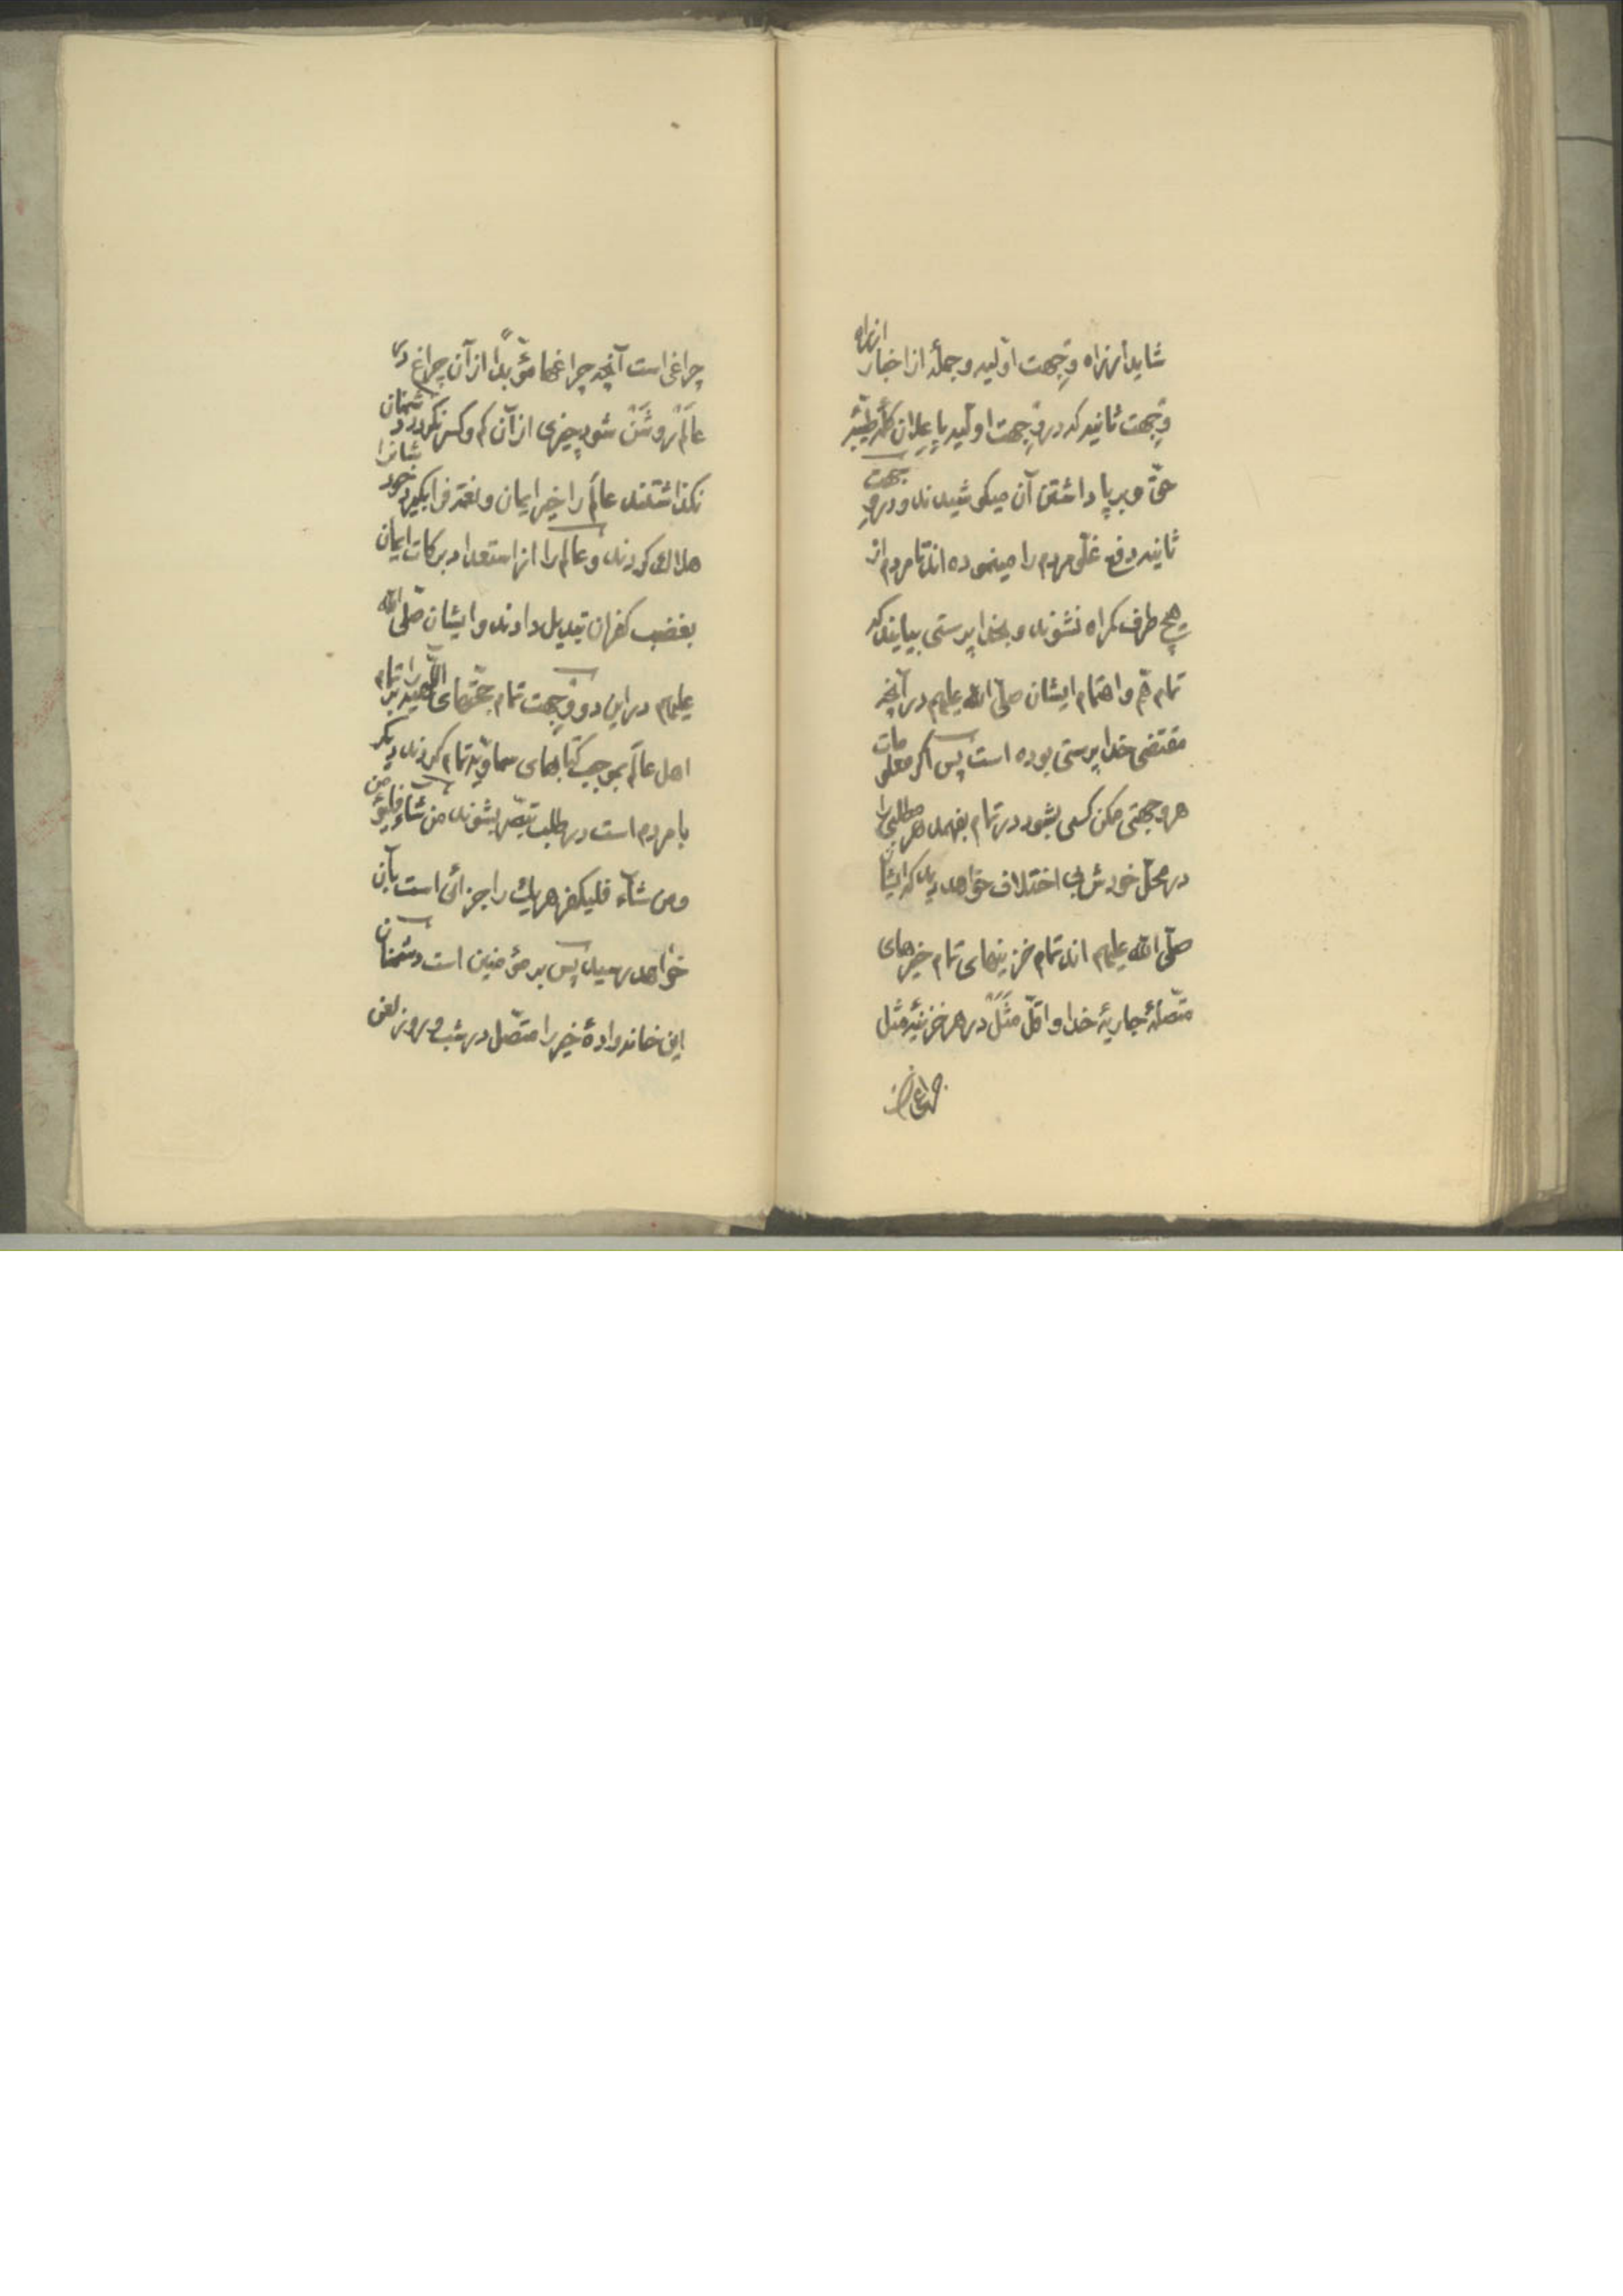 شاید از راه وجهت اوّلیه و جمله از اخبار از راه
وجهت ثانیه که در وجهت اولیه باعلان کلمهٔ طیّبهٔ
حقّ و برپا داشتن آن میکوشیدند و در وجهت
ثانیه دفع غلّو مردم را مینموده‌اند تا مردم از
هیچ طرف کمراه نشوند و بخدا پرستی بیایند که
تمام همّ و اهتمام ایشان صلّی الله علیهم در آنچه
مقتضی خدا پرستی بوده است پس اکر معلومات
هر وجهتی ممکن کسی بشود در تمام بفهمد هر مطلبی را
در محلّ خودش بی اختلاف خواهد دید که ایشان
صلّی الله علیهم اند تمام خزینهای تمام خیرهای
متّصلهٔ جاریهٔ خدا و اقلّ مَثَلاً در هر خزینهٔ مثل
چراغی است آنچه چراغها مؤبّداً از آن چراغ در
عالَم روشن شود چیزی از آن کم و کسر نکردد دشمنان
نکذاشتند عالَم را خیر ایمان و نعمت فرا بکیرد خود شانرا
هلاک کردند و عالم را از استعداد برکات ایمان
بغضب کفران تبدیل دادند و ایشان صلّی الله
علیهم در این دو وجهت تمام حجّتهای الٓهیه را تمام بر
اهل عالَم بموجب کتابهای سماویّه تمام کردند دیکر
با مردم است در طلب تبصّر بشوند من شآء فلیؤمن
و من شآء فلیکفر هر یک را جزائی است بآن
خواهد رسید پس بر مؤمنین است دشمنان
این خانوادهٔ خیر را متّصل در شب و روز لعن